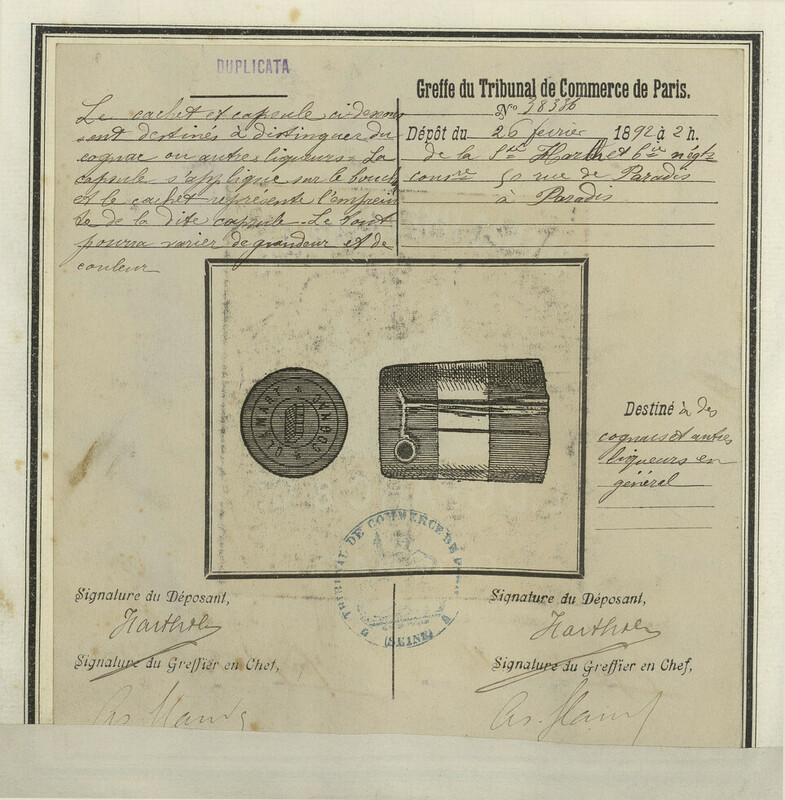 DUPLICATA
Le cachet et capsule ci-dessous
sont destinés à distinguer du
cognac ou autres liqueurs. La
capsule s'applique sur le bouch
et le cachet représente l'emprein
te de la dite capsule. Le tout
pourra varier de grandeur et de
couleur
Greffe du Tribunal de Commerce de Paris.
No 38386
Dépôt du 26 février 1892 à 2 h.
de la Sté et Cie négts
50 rue de Paradis
à Paradis
COGNAC
Destiné à des
cognacs et autres
liqueurs en
général
TRIBUNAL DE COMMERCE DE
(SEINE)
Signature du Déposant,
Signature du Greffier en Chef,
Signature du Déposant,
Signature du Greffier en Chef,